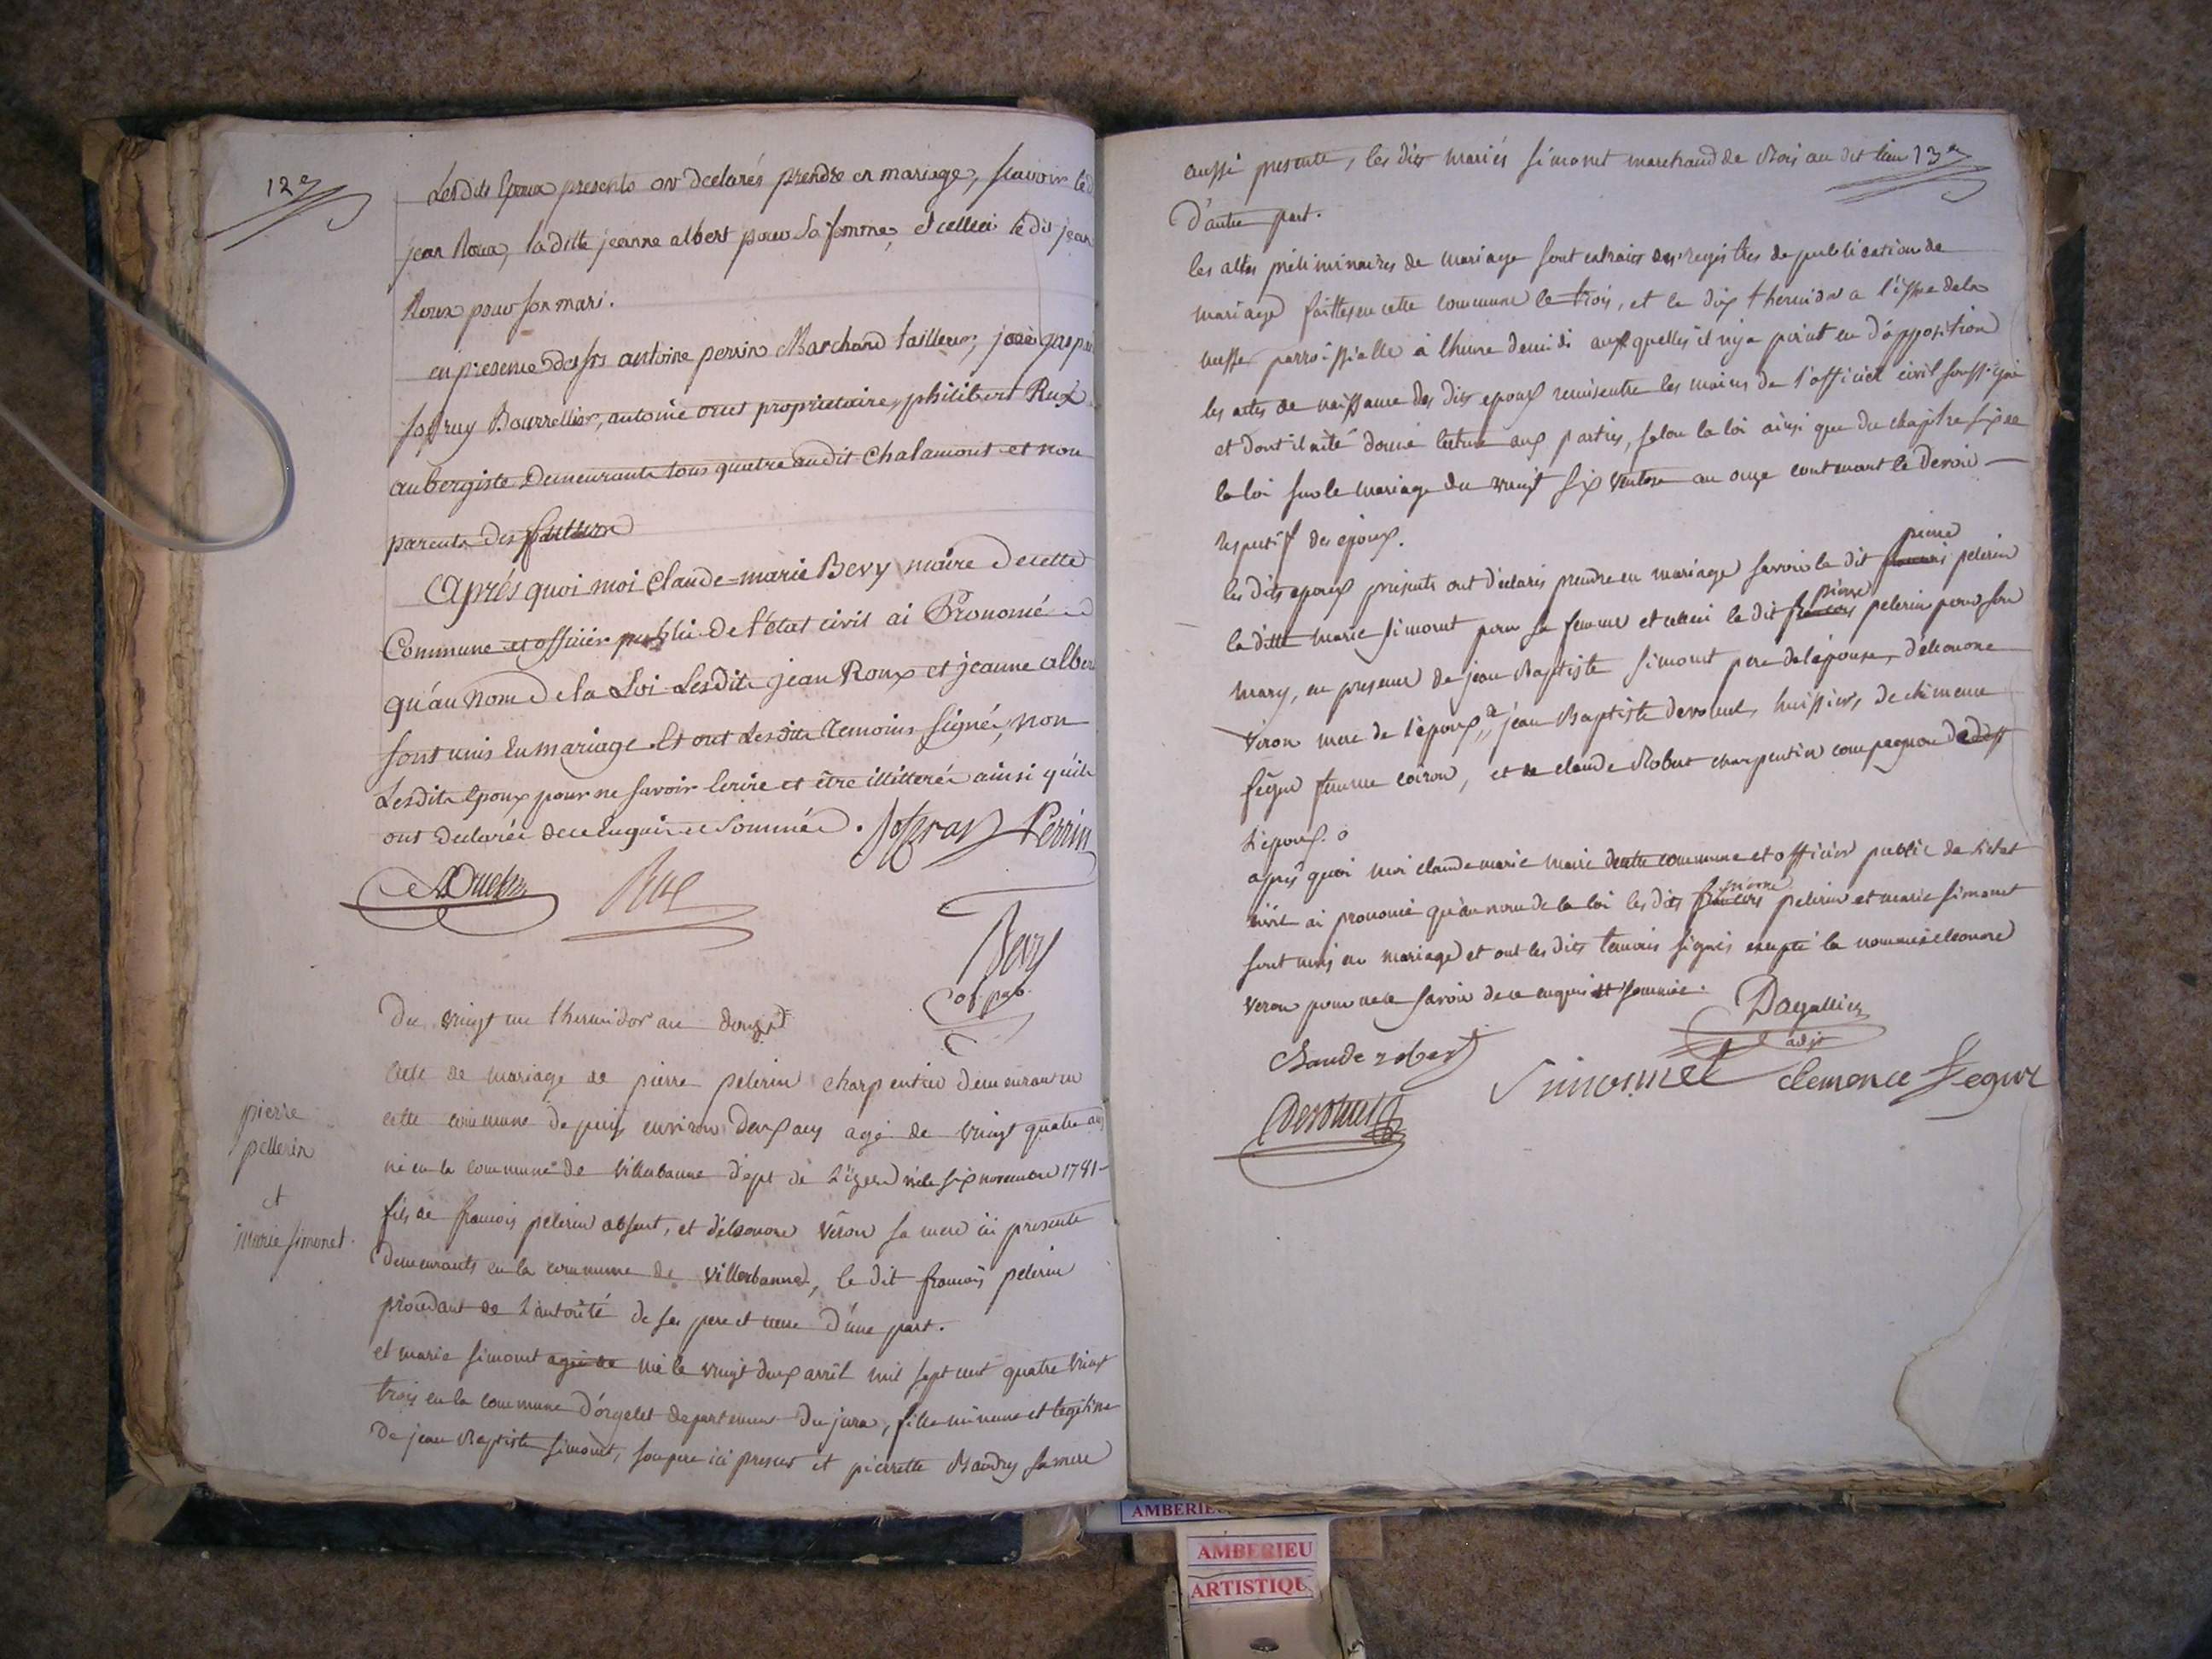 12e
Lesdits Epoux presents ont declarés prendre en mariage, scavoir led
jean Roux, la ditte jeanne albert pour sa femme, et celleci le dit jean
Roux pour son mari.
en presence des srs antoine perrin Marchand tailleur,
Bourrellier, antoine proprietaire, philibert Rux
aubergiste Demeurants tous quatre audit Chalamont et non
parents des
Après quoi moi Claude=marie Bevy maire de cette
Commune et officier public de l'état civil ai Prononcé
qu'au nom de la Loi Lesdits jean Roux et jeanne alber
sont unis en mariage Et ont Lesdits temoins signé, non
Lesdits Epoux pour ne savoir Ecrire et être illitterés ainsi qu'ils
ont declarés de ce Enquis et Sommés. Perrin
Rux
Bevy
of. pub.
Du vingt un thermidor an douze
acte de mariage de pierre pelerin charpentier demeurant en
cette commune depuis environ deux ans agé de vingt quatre ans
né en la commune de villeurbanne dept de l'izere né le six novembre 1781
pierre
pellerin
et
marie simonet.
fils de francois pelerin absent, et d'eleonore véron sa mere ici presente
demeurants en la commune de villeurbanne, le dit francois pelerin
procedant de l'autorité de ses pere et mere d'une part.
et marie simonet agée de née le vingt deux avril mil sept cent quatre vingt
trois en la commune d'orgelet departement du jura, fille mineure et legitime
de jean Baptiste simonet, son pere ici present et pierrette Baudry sa mere
13e
aussi presente, les dits mariés simonet marchand de Bois au dit lieu
d'autre part.
les actes préliminaires de mariage sont extraits des registres de publication de
mariage faittes en cette commune le trois, et le dix thermidor a l'issue de la
messe parroissialle à l'heure de midi auxquelles il n'y a point eu d'opposition
les actes de naissance des dits epoux remis entre les mains de l'officier civil soussigné
et dont il a été donné lecture aux parties, selon la loi ainsi que du chapitre six de
la loi sur le mariage du vingt six ventose an onze contenant le devoir
respectif des epoux.
pierre
les dits epoux presents ont déclarés prendre en mariage savoir le dit francois pelerin
pierre
la ditte marie simonet pour sa femme et celleci le dit francois pelerin pour son
mary, en presence de jean Baptiste simonet pere de l'epouse, d'éleonore
véron mere de l'epoux, de jean Baptiste huissier, de clémence
femme et de claude Robert charpentier compagnon
L'epoux.
après quoi moi claude marie maire de cette commune et officier public de l'etat
pierre
civil ai prononcé qu'au nom de la loi les dits francois pelerin et marie simonet
sont unis en mariage et ont les dits temoins signés excepté la nommée eleonore
veron pour ne le savoir de ce enquis et sommée.
Dagallier
adjt
Claude robert
Simonnet
clemence Segur
AMBERIEU
AMBERIEU
ARTISTIQU